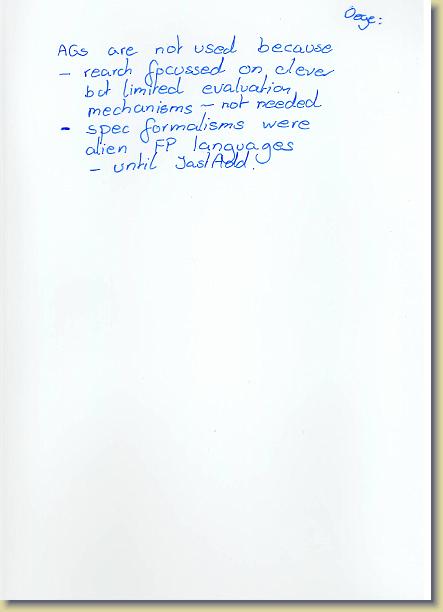 Oege:
AGs are not used because
- rearch focussed on clever
but limited evaluation
mechanisms - not needed
- spec formalisms were
alien FP languages
- until JastAdd.